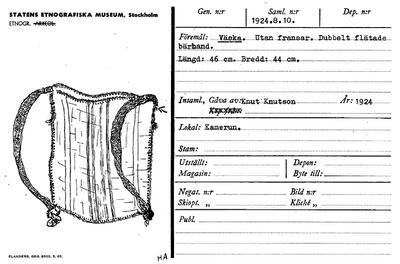 STATENS ETNOGRAFISKA MUSEUM, Stockholm
ETNOGR.
Gen. n:r
Saml. n:r
Dep. n:r
1924.8.10.
Föremål: Väska. Utan fransar. Dubbelt flätade
bärband.
Längd: 46 cm. Bredd: 44 cm.
Insaml., Gåva av: Knut Knutson
År: 1924
Lokal: Kamerun.
Stam:
Utställt:
Depon:
Magasin:
Byte till:
Negat. n:r
Bild n:r
Skiopt. „
Kliché „
Publ.
HA